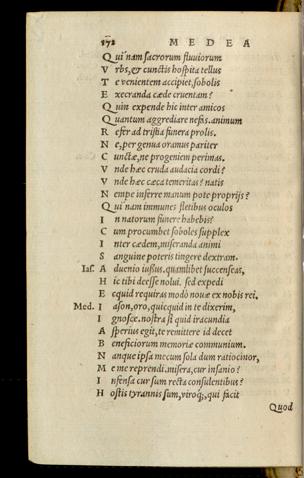 172 MEDEA
Qui nam sacrorum fluuiorum
Vrbs, & cunctis hospita tellus
Te venientem accipiet. sobolis
Execranda cæde cruentam?
Quin expende hic inter amicos
Quantum aggrediare nefas. animum
Refer ad tristia funera prolis.
Ne, per genua oramus pariter
Cunctæ, ne progeniem perimas.
Vnde hæc cruda audacia cordi?
Vnde hæc cæca temeritas? natis
Nempe inferre manum pote proprijs?
Qui nam immunes fletibus oculos
In natorum funere habebis?
Cum procumbet soboles supplex
Inter cædem, miseranda animi
Sanguine poteris tingere dextram.
Ias. Aduenio iussus. quamlibet succenseas,
Hic tibi deesse nolui. sed expedi
Ecquid requiras modò nouæ ex nobis rei.
Med. Iason, oro, quicquid in te dixerim,
Ignosce. nostra si quid iracundia
Asperius egit, te remittere id decet
Beneficiorum memoriæ communium.
Nanque ipsa mecum sola dum ratiocinor,
Me me reprendi. misera, cur insanio?
Infensa cur sum recta consulentibus?
Hostis tyrannis sum, viroq́;, qui facit
Quod